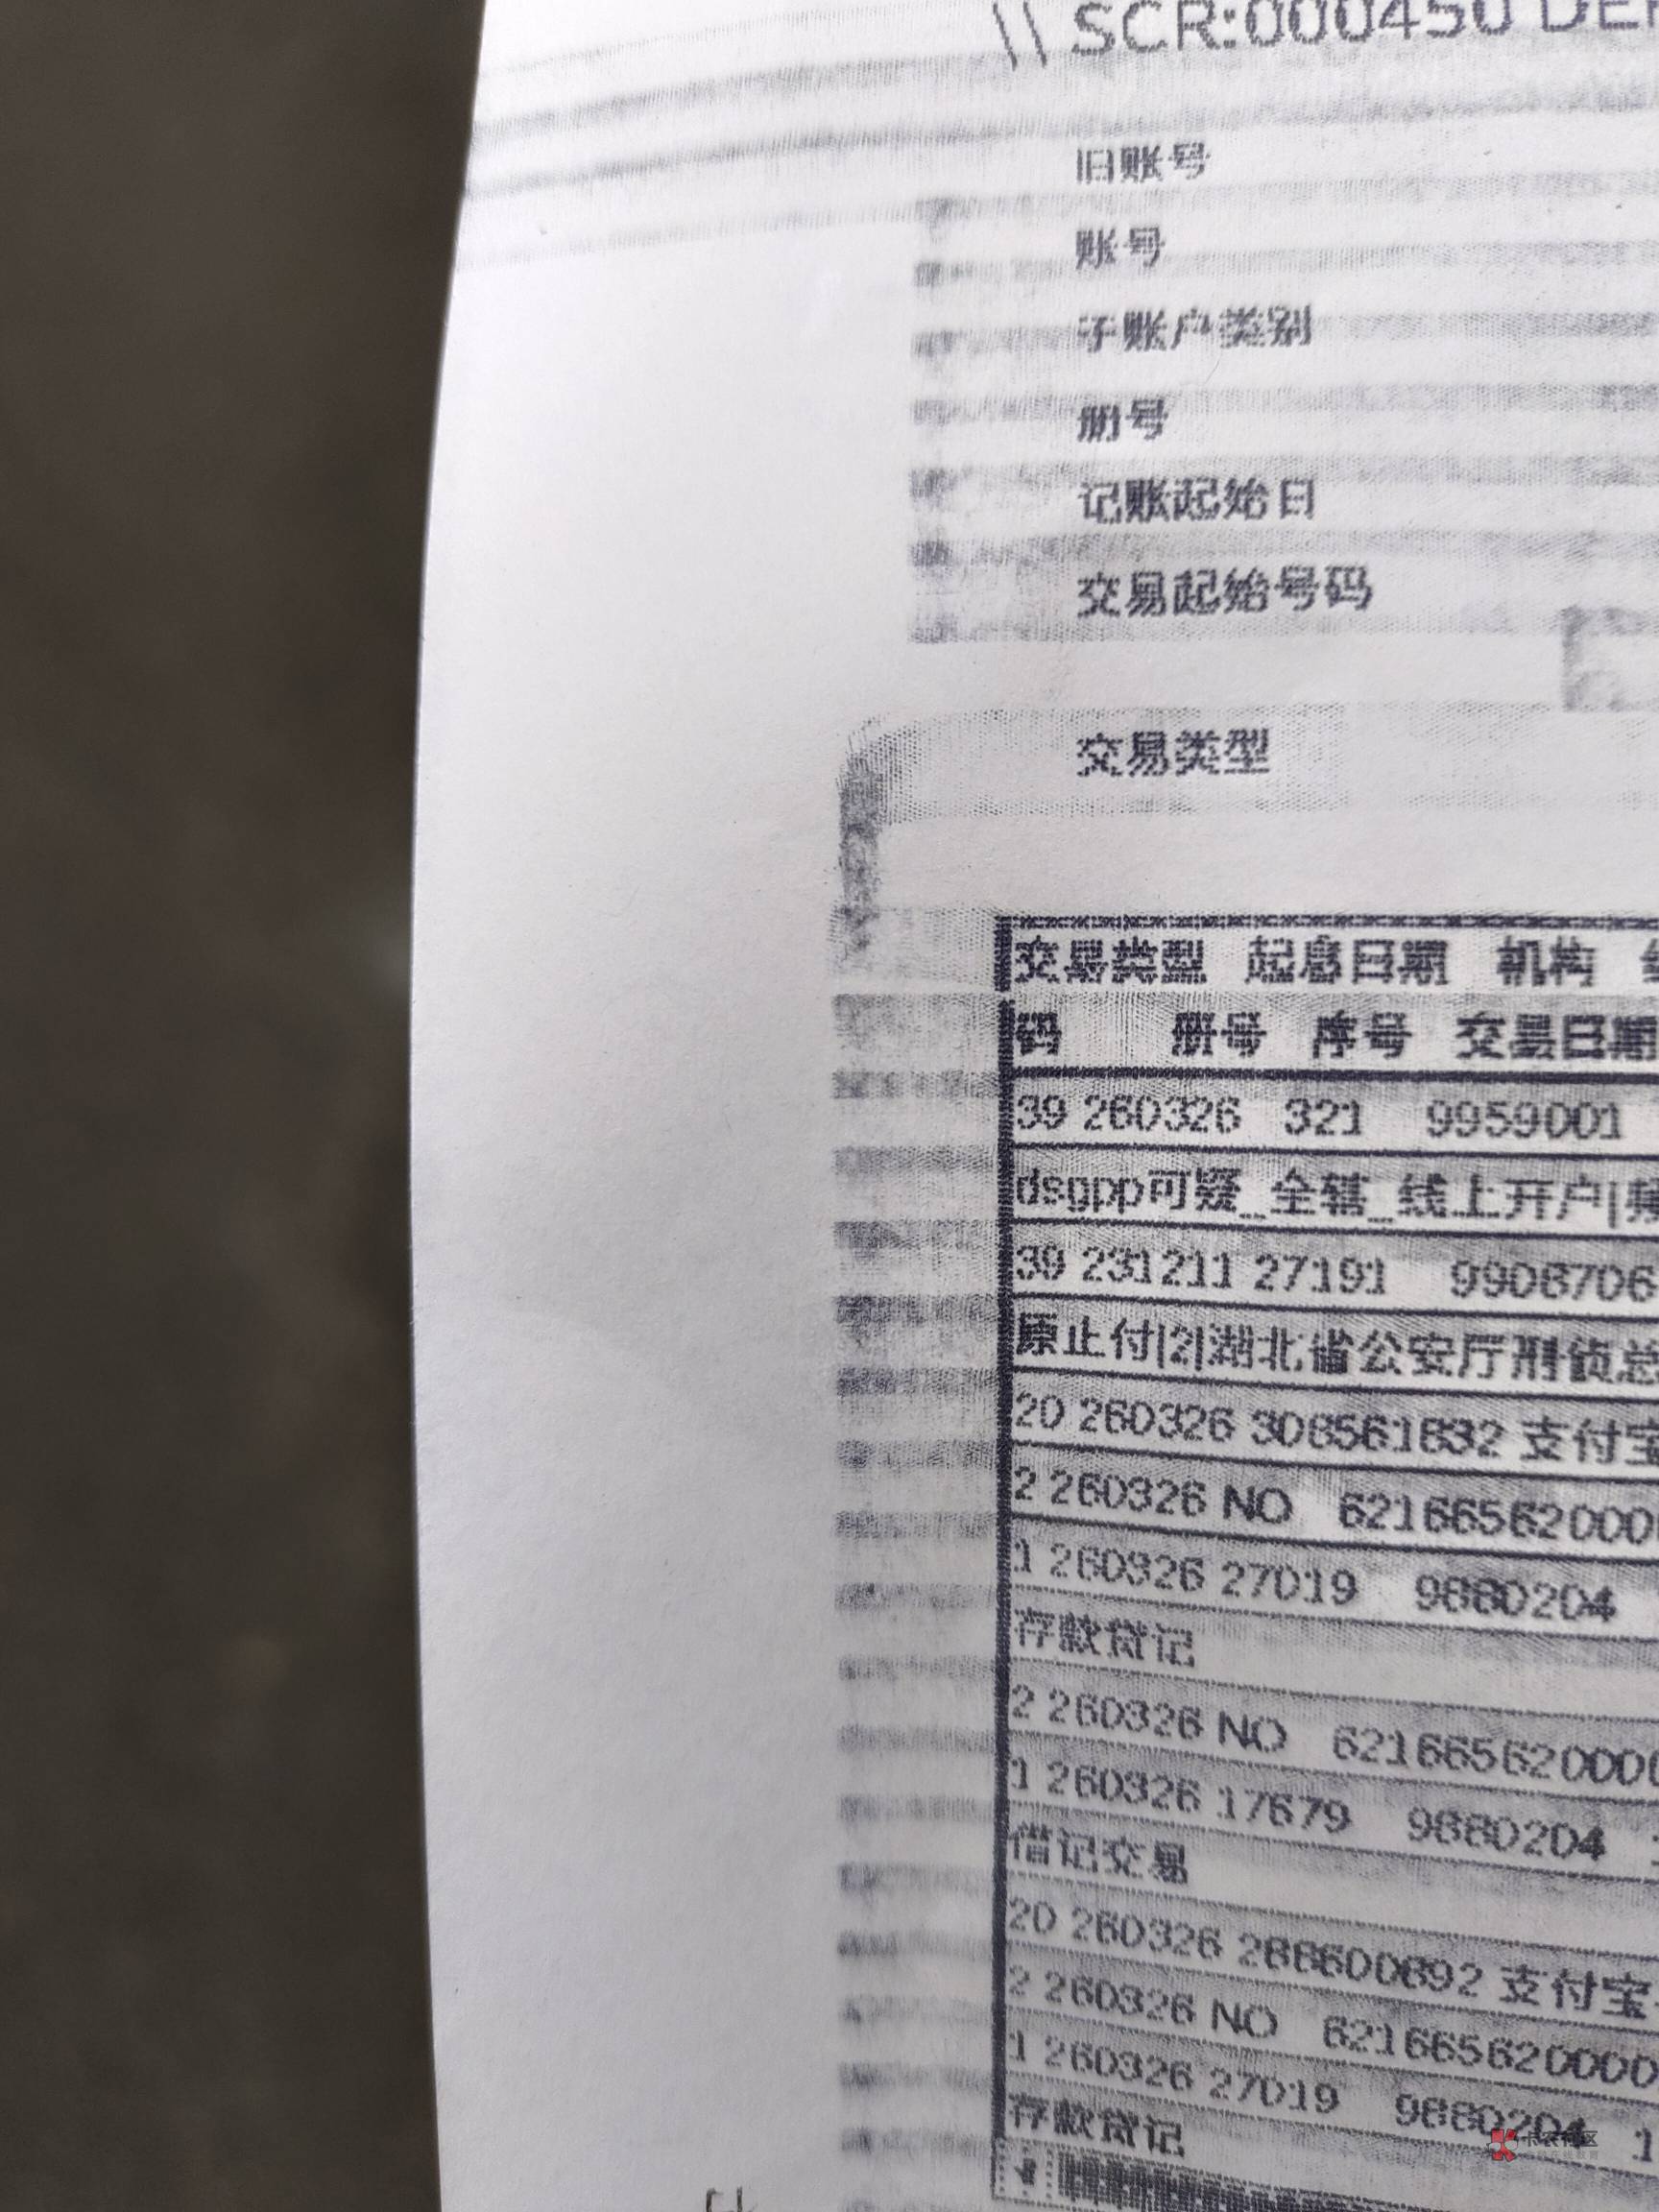 \\ SCR:000450 DEP
旧账号
账号
子账户类别
册号
记账起始日
交易起始号码
交易类型
交易类型 起息日期 机构
码 册号 序号 交易日期
39 260326 321 9959001
dsgpp可疑_全辖_线上开户|频
39 231211 27191 9906706
原止付|2|湖北省公安厅刑侦总
20 260326 306561632 支付宝
2 260326 NO 62166562000
1 260326 27019 9880204
存款贷记
2 260326 NO 621665620000
1 260326 17679 9880204
借记交易
20 260326 288600892 支付宝
2 260326 NO 621665620000
1 260326 27019 9880204 1
存款贷记
卡农社区